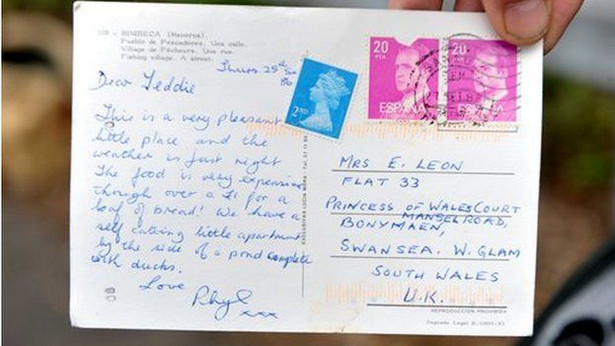 119 - BINIBECA (Menorca)
Pueblo de Pescadores. Una calle.
Village de Pêcheurs. Une rue.
Fishing village. A street.
Thurs. 25th
Dear Teddie
This is a very pleasant
little place and the
weather is just right
The food is very expensive
though over a £1 for a
loaf of bread! We have a
self catering little apartment
by the side of a pond complete
with ducks.
Love
Rhyl
xxx
2ND
20
PTA
ESPAÑA
20
ESPAÑA
EXCLUSIVAS
MRS E. LEON
FLAT 33
PRINCESS OF WALES COURT
MANSEL ROAD,
BONYMAEN,
SWANSEA. W. GLAM
SOUTH WALES
U.K.
REPRODUCCION PROHIBIDA
Deposito Legal B.